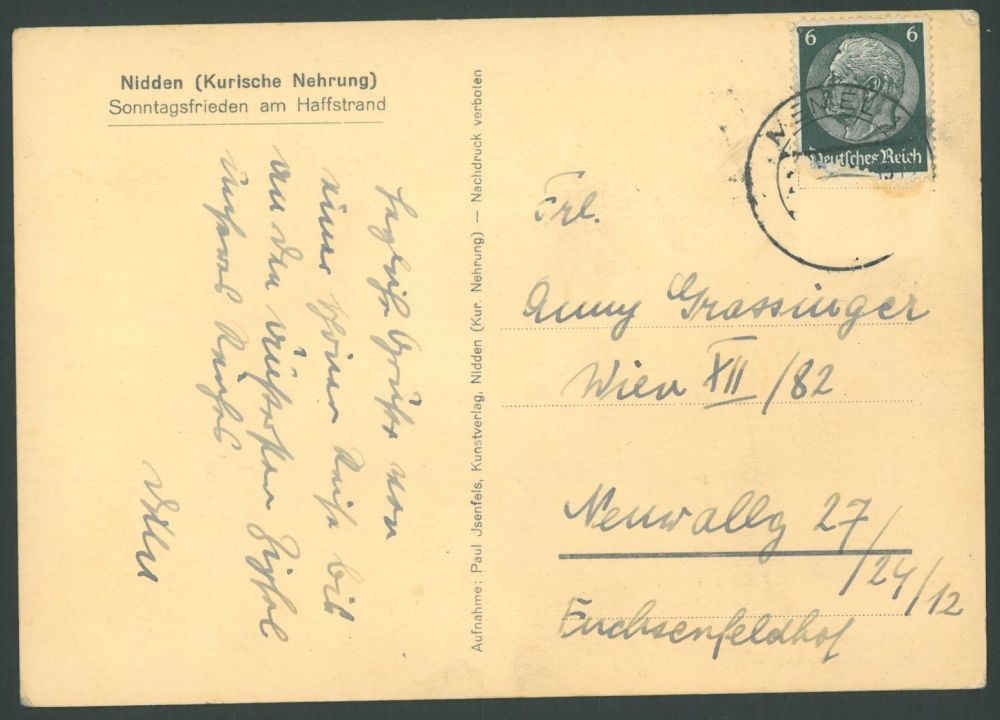 Nidden (Kurische Nehrung)
Sonntagsfrieden am Haffstrand
Herzliche Grüße von
einer schönen Reise bis
an den äußersten Zipfel
unseres Reiches
Aufnahme: Paul Jsenfels, Kunstverlag, Nidden (Kur. Nehrung) — Nachdruck verboten
6 6
Deutsches Reich
MEMEL
Frl.
Anny Grassinger
Wien XII/82
Neuwallg 27/24/12
Fuchsenfeldhof